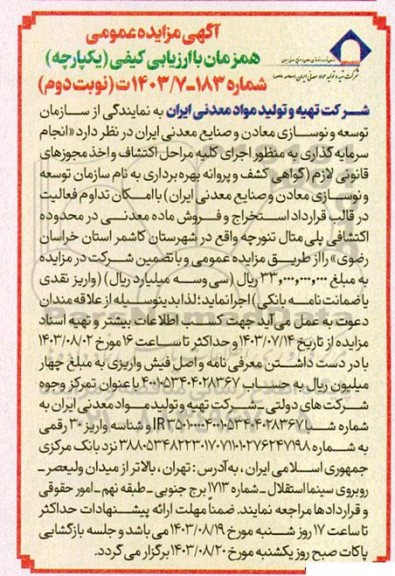 آگهی مزایده عمومی
همزمان با ارزیابی کیفی (یکپارچه)
شماره ۱۸۳-۱۴۰۳/۷ت (نوبت دوم)
شرکت تهیه و تولید مواد معدنی ایران
شرکت تهیه و تولید مواد معدنی ایران به نمایندگی از سازمان
توسعه و نوسازی معادن و صنایع معدنی ایران در نظر دارد «انجام
سرمایه گذاری به منظور اجرای کلیه مراحل اکتشاف و اخذ مجوزهای
قانونی لازم (گواهی کشف و پروانه بهره برداری به نام سازمان توسعه
و نوسازی معادن و صنایع معدنی ایران) با امکان تداوم فعالیت
در قالب قرارداد استخراج و فروش ماده معدنی در محدوده
اکتشافی پلی متال تنورچه واقع در شهرستان کاشمر استان خراسان
رضوی» را از طریق مزایده عمومی و با تضمین شرکت در مزایده
به مبلغ ۳۳,۰۰۰,۰۰۰,۰۰۰ ریال (سی و سه میلیارد ریال) (واریز نقدی
یا ضمانت نامه بانکی) اجرا نماید؛ لذا بدینوسیله از علاقه مندان
دعوت به عمل می آید جهت کسب اطلاعات بیشتر و تهیه اسناد
مزایده از تاریخ ۱۴۰۳/۰۷/۱۴ و حداکثر تا ساعت ۱۶ مورخ ۱۴۰۳/۰۸/۰۲
با در دست داشتن معرفی نامه و اصل فیش واریزی به مبلغ چهار
میلیون ریال به حساب ۴۰۰۱۰۵۳۴۰۴۰۲۸۳۶۷ با عنوان تمرکز وجوه
شرکت های دولتی - شرکت تهیه و تولید مواد معدنی ایران به
شماره شبا IR۳۵۰۱۰۰۰۰۴۰۰۱۰۵۳۴۰۴۰۲۸۳۶۷ و شناسه واریز ۳۰ رقمی
به شماره ۳۸۸۰۵۳۴۸۲۲۳۰۱۷۰۷۱۱۰۱۰۲۷۶۲۴۷۱۹۸ نزد بانک مرکزی
جمهوری اسلامی ایران، به آدرس: تهران، بالاتر از میدان ولیعصر -
روبروی سینما استقلال - شماره ۱۷۱۳ برج جنوبی - طبقه نهم - امور حقوقی
و قراردادها مراجعه نمایند. ضمناً مهلت ارائه پیشنهادات حداکثر
تا ساعت ۱۷ روز شنبه مورخ ۱۴۰۳/۰۸/۱۹ می باشد و جلسه بازگشایی
پاکات صبح روز یکشنبه مورخ ۱۴۰۳/۰۸/۲۰ برگزار می گردد.